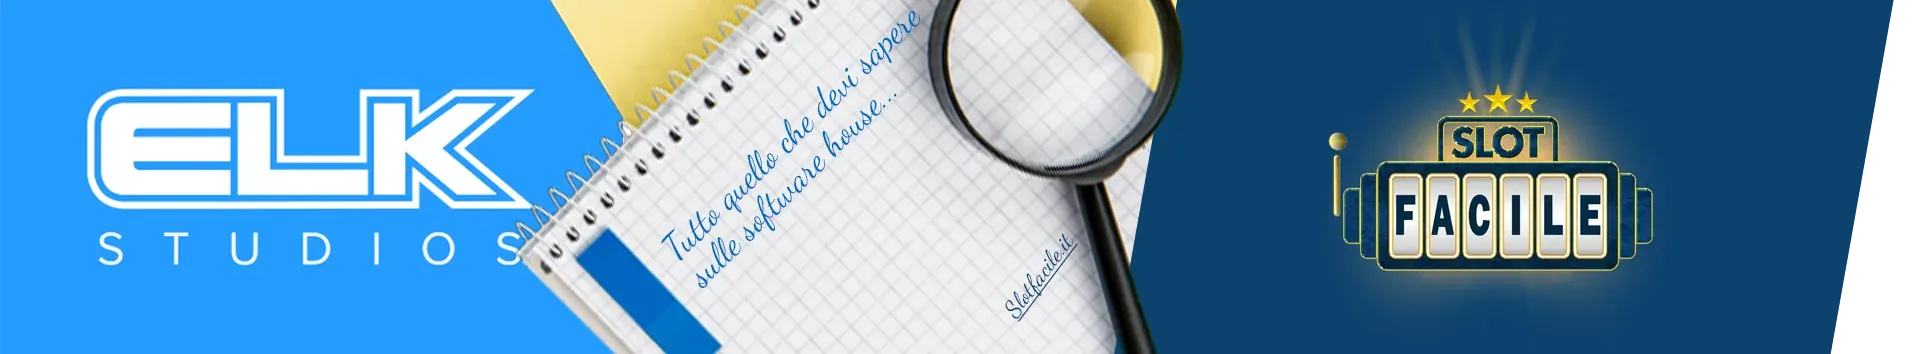 ELK
STUDIOS
Tutto quello che devi sapere
sulle software house...
Slotfacile.it
SLOT
FACILE